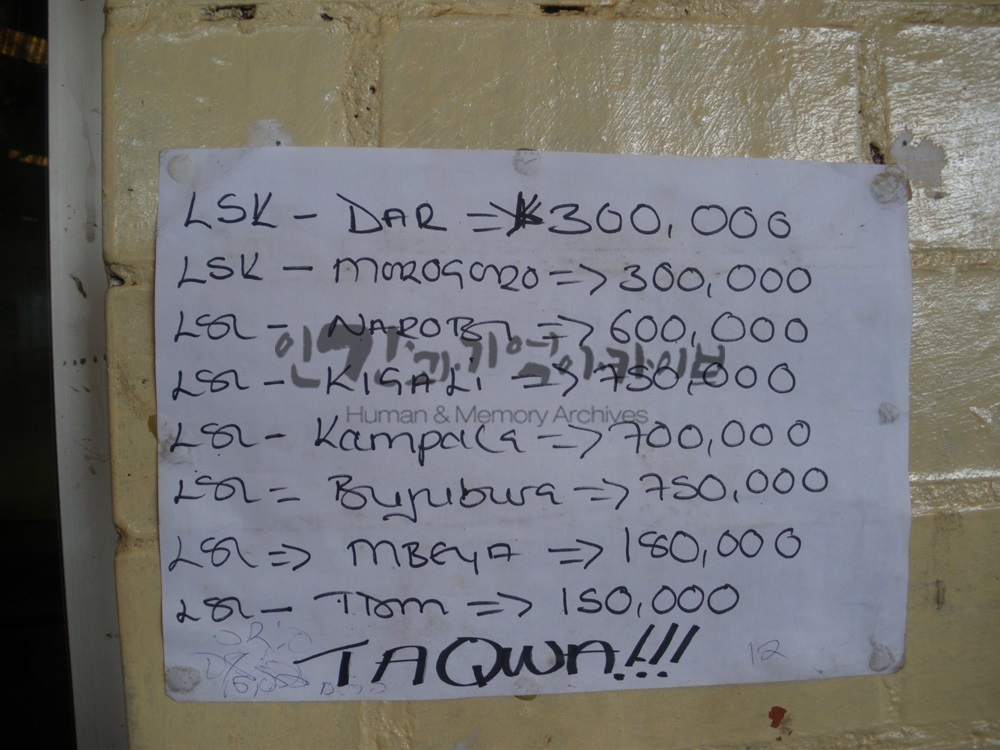 LSK - DAR => K300,000
LSK - MOROGORO => 300,000
LSK - NAROBI => 600,000
인간과 기억 아카이브
LSK - KIGALI => 750,000
Human & Memory Archives
LSK - Kampala => 700,000
LSK = Bujubura => 750,000
LSK => MBEYA => 180,000
LSK - TDM => 150,000
TAQWA!!!
12